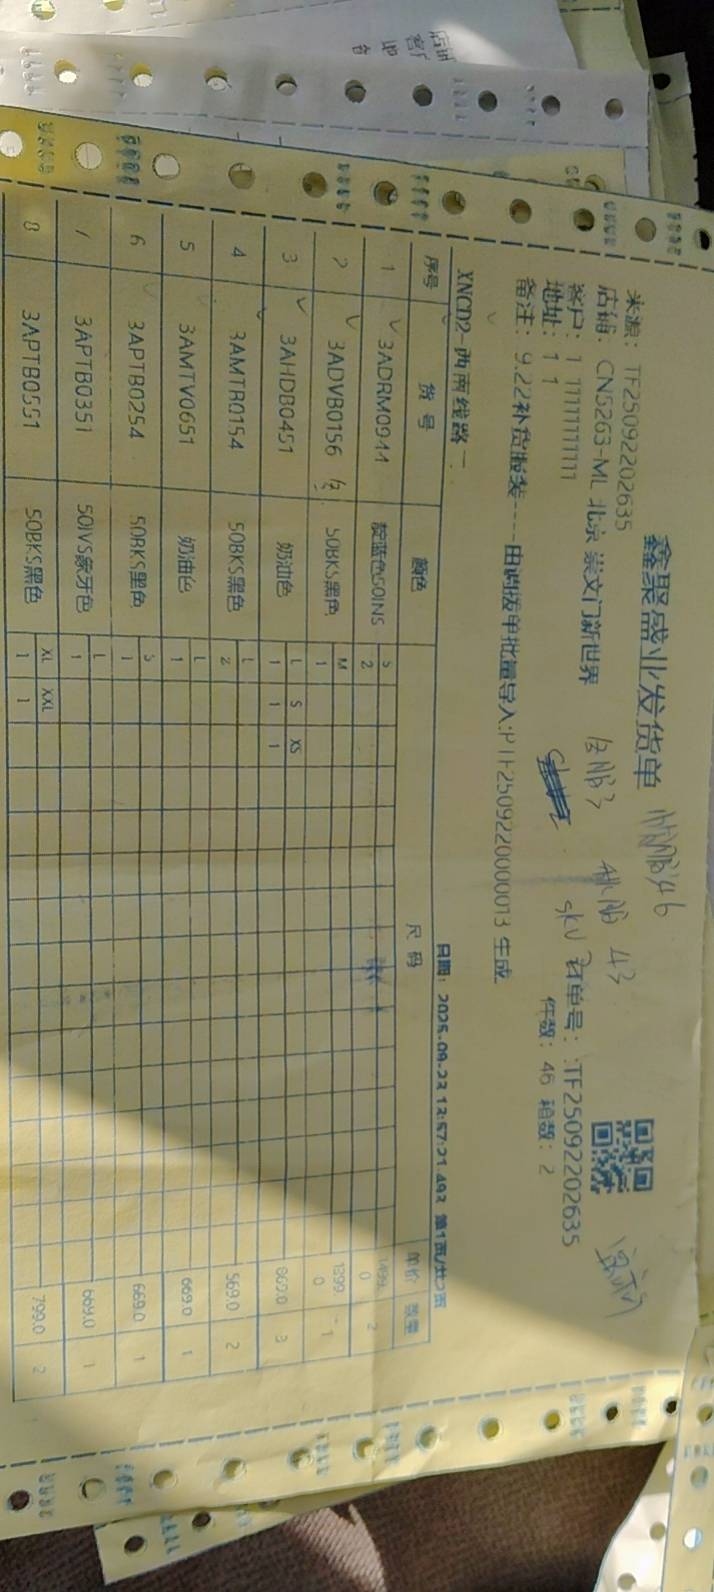 鑫聚盛业发货单
来源: TF25092202635
店铺: CN5263-ML 北京 崇文门新世界
单号: :TF25092202635
客户: 1 11111111111
件数: 46 箱数: 2
地址: 1 1
备注: 9.22补货服装----由调拨单批量导入:PTF2509220000013 生成
XNCD2-西南线路一
日期: 2025-09-23 13:57:21.493 第1页/共2页
序号 货 号 颜色 尺 码 单价 数量
1 3ADRM0944 靛蓝色50INS S 2 1499.0 2
2 3ADVB0156 50BKS黑色 M 1 1899.0 1
3 3AHDB0451 奶油色 L 1 S 1 XS 1 869.0 3
4 3AMTB0154 50BKS黑色 L 2 569.0 2
5 3AMTV0651 奶油色 L 1 669.0 1
6 3APTB0254 50BKS黑色 S 1 669.0 1
7 3APTB0351 50IVS象牙色 L 1 669.0 1
8 3APTB0551 50BKS黑色 XL 1 XXL 1 799.0 2